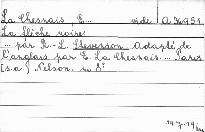 La Chesnais, E... vide A 36951
La flèche noire
... par R.-L. Stevenson. Adapté de
l'anglais par E. La Chesnais. ... Paris
[s.a.] Nelson